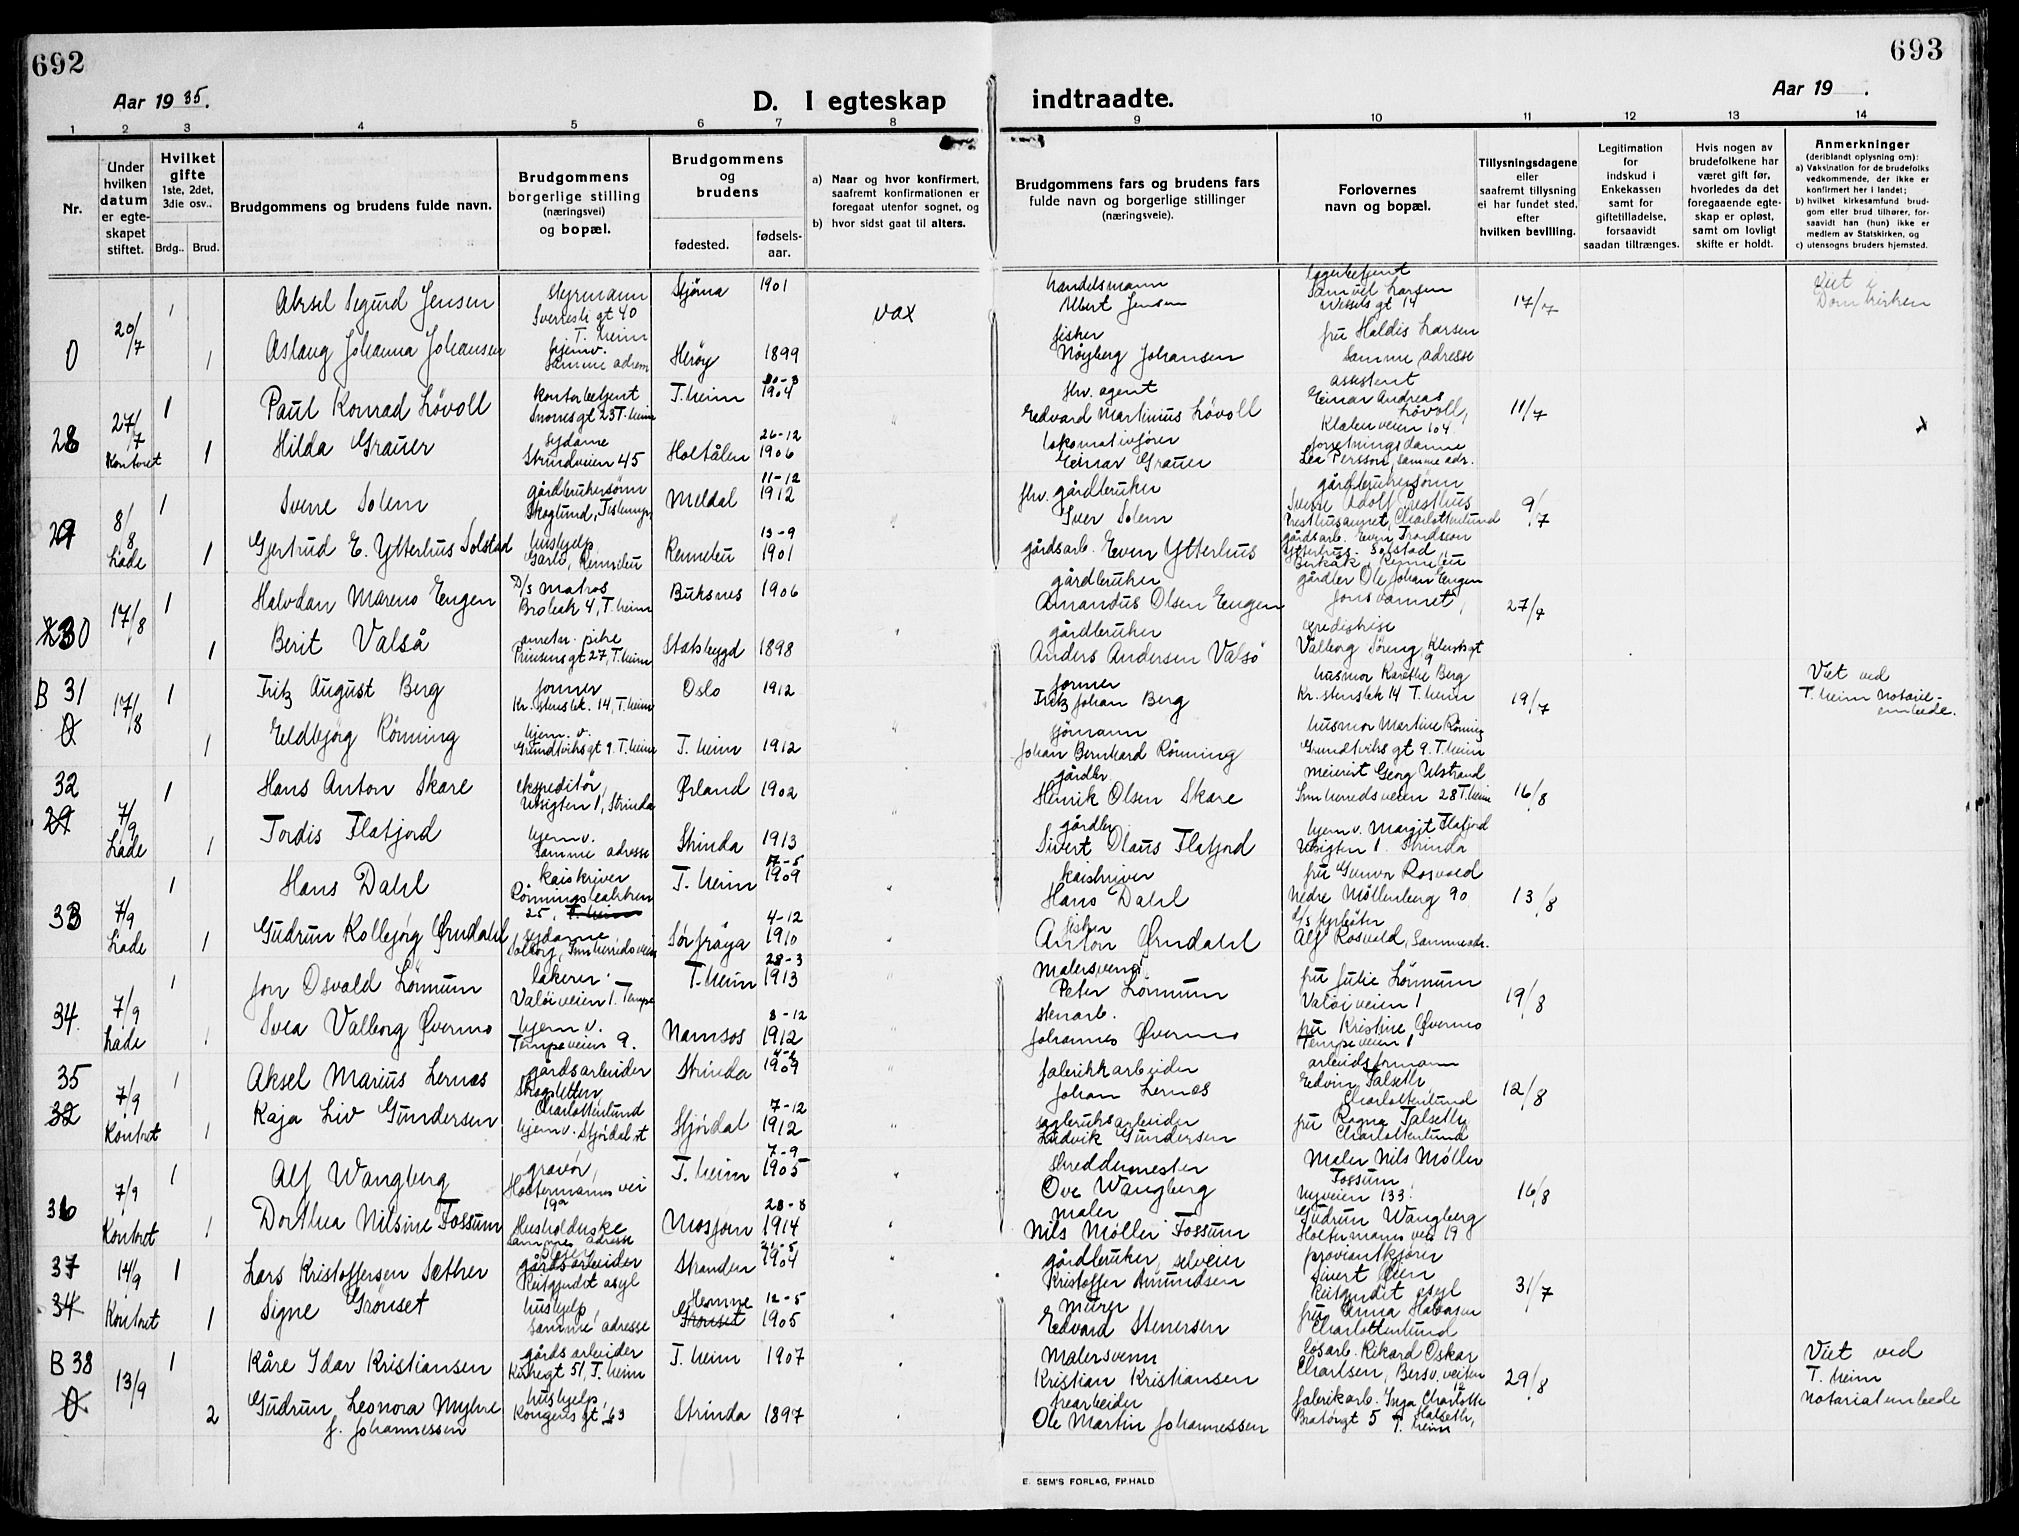 692
693
Aar 1935.
D. I egteskap
indtraadte.
Aar 19 .
1 2 3 4 5 6 7 8 9 10 11 12 13 14
Nr.
Under hvilken datum er egte-skapet stiftet.
Hvilket gifte
1ste, 2det, 3die osv..
Brdg.. Brud.
Brudgommens og brudens fulde navn.
Brudgommens borgerlige stilling (næringsvei) og bopæl.
Brudgommens og brudens
fødested.
fødsels-aar.
a) Naar og hvor konfirmert, saafremt konfirmationen er foregaat utenfor sognet, og
b) hvor sidst gaat til alters.
Brudgommens fars og brudens fars fulde navn og borgerlige stillinger (næringsveie).
Forlovernes navn og bopæl.
Tillysningsdagene eller saafremt tillysning ei har fundet sted, efter hvilken bevilling.
Legitimation for indskud i Enkekassen samt for giftetilladelse, forsaavidt saadan tiltrænges.
Hvis nogen av brudefolkene har været gift før, hvorledes da det foregaaende egte-skap er opløst, samt om lovligt skifte er holdt.
Anmerkninger (deriblandt oplysning om):
a) Vaksination for de brudefolks vedkommende, der ikke er konfirmert her i landet;
b) hvilket kirkesamfund brud-gom eller brud tilhører, for-saavidt han (hun) ikke er medlem av Statskirken, og
c) utensogns bruders hjemsted.
0 20/7 1 Aksel Sigurd Jensen styrmann 1901 vax handelsmann Albert Jensen lagerbetjent Samuel Larsen 17/7 Viet i Domkirken
1 Aslaug Johanna Johansen hjemv. samme adresse Herøy 1899 fisker Johansen fru Haldis Larsen samme adresse
28 27/7 Kontoret 1 Paul Konrad Løvoll kontorbetjent T.heim 1904 hv. agent Edvard Martinius Løvoll assistent Einar Andreas Løvoll, 11/7
1 Hilda Grauer sydame Strindveien 45 Holtålen 26-12 1906 lokomotivfører Einar Grauer forretningsdame Lea Persson, samme adr.
29 8/8 Lade 1 Sverre Solem gårdbrukersønn Meldal 11-12 1912 fhv. gårdbruker Iver Solem gårdbrukersønn Sverre Adolf Presthus Charlottenlund 9/7
1 Gjertrud E. Ytterhus Solstad hushjelp Rennebu 13-9 1901 gårdsarb. Even Ytterhus gårdsarb. Even Trondsson Ytterhus-Solstad, Berkåk, Rennebu
30 17/8 1 Halvdan Mareno Engen D/s matros T.heim Buksnes 1906 gårdbruker Amandus Olsen Engen gårdbr Ole Johan Engen Jonsvannet, 27/7
1 Berit Valså Prinsensgt 27, T.heim Stadsbygd 1898 gårdbruker Anders Andersen Valsø Valborg
B 31 0 17/8 1 Fritz August Berg former 14, T.heim Oslo 1912 former Fritz Johan Berg husmor Karethe Berg 14 T.heim 19/7 Viet ved T.heim notarie-embede.
1 Eldbjørg Rønning hjem. v. Grundtviksgt 9. T.heim T.heim 1912 sjømann Johan Bernhard Rønning husmor Martine Rønning Grundtviks gt 9. T.heim
32 29 7/9 Lade 1 Hans Anton Skare ekspeditør, Utsigten 1, Strinda Ørland 1902 gårdbr Henrik Olsen Skare meierist Georg Ulstrand Innherredsveien 28 T.heim 16/8
1 Tordis Flatjord hjem v. samme adresse Strinda 1913 gårdbr. Sivert Olaus Flatjord hjem v. Margit Flatjord Utsigten 1. Strinda
33 7/9 Lade 1 Hans Dahl kaiskriver Rønningsbakken 25, T.heim T.heim 7-5 1909 kaiskriver Hans Dahl fru Gunvor Rosvold nedre Møllenberg 90 13/8
1 Gudrun Kolbjørg Ørndahl sydame, Solborg, Innherredsveien Sørfrøya 4-12 1910 fisker Anton Ørndahl Alf Rosvold, samme adr.
34 7/9 Lade 1 Jon Osvald Lønnum lakerer Valøiveien 1. Tempe T.heim 28-3 1913 malersvend Peter Lønnum fru Julie Lønnum Valøiveien 1 19/8
1 Svea Valborg Øvermo hjem v. Tempeveien 9. Namsos 8-12 1912 stenarb. Johannes Øvermo fru Kristine Øvermo Tempeveien 1
35 32 7/9 Kontoret 1 Aksel Marius Lernæs gårdsarbeider Skogsletten, Charlottenlund Strinda 1909 fabrikkarbeider Johan Lernæs arbeidsformann Edvin Falseth, Charlottenlund 12/8
1 Kaja Liv Gundersen hjem v. Stjørdal st Stjørdal 7-12 1912 sagbruksarbeider Ludvik Gundersen fru Ragna Falseth, Charlottenlund
36 7/9 Kontoret 1 Alf Wangberg gravør, Holtermanns vei 19a T.heim 7-9 1905 skreddermester Ove Wangberg maler Nils Møller Fossum, Nyveien 133. 16/8
1 Dorthea Nilsine Fossum Husholderske samme adresse Mosjøen 28-8 1914 maler Nils Møller Fossum Gudrun Wangberg Holtermanns vei 19
37 34 14/9 Kontoret 1 Lars Kristoffersen Sæther gårdsarbeider Reitgjerdet asyl Stranden 1904 gårdbruker, selveier Kristoffer Amundsen proviantkjører Sivert Øien Reitgjerdet asyl 31/7
1 Signe Grønset hushjelp, samme adresse Hemne Grønset 12-5 1905 murer Edvard Stenersen fru Anna Charlottenlund
B 38 0 13/9 1 Kåre Idar Kristiansen gårdsarbeider Kirkegt 51, T.heim T.heim 1907 malersvenn Kristian Kristiansen løsarb. Rikard Oskar Charlsen, 29/8 Viet ved T.heim notariatembede
2 Gudrun Leonora Myhre f. Johannessen hushjelp, Kongens gt 63 Strinda 1897 Ole Martin Johannessen fabrikarb. Inga Charlotte Halseth, T.heim
E. SEM'S FORLAG, FR.HALD